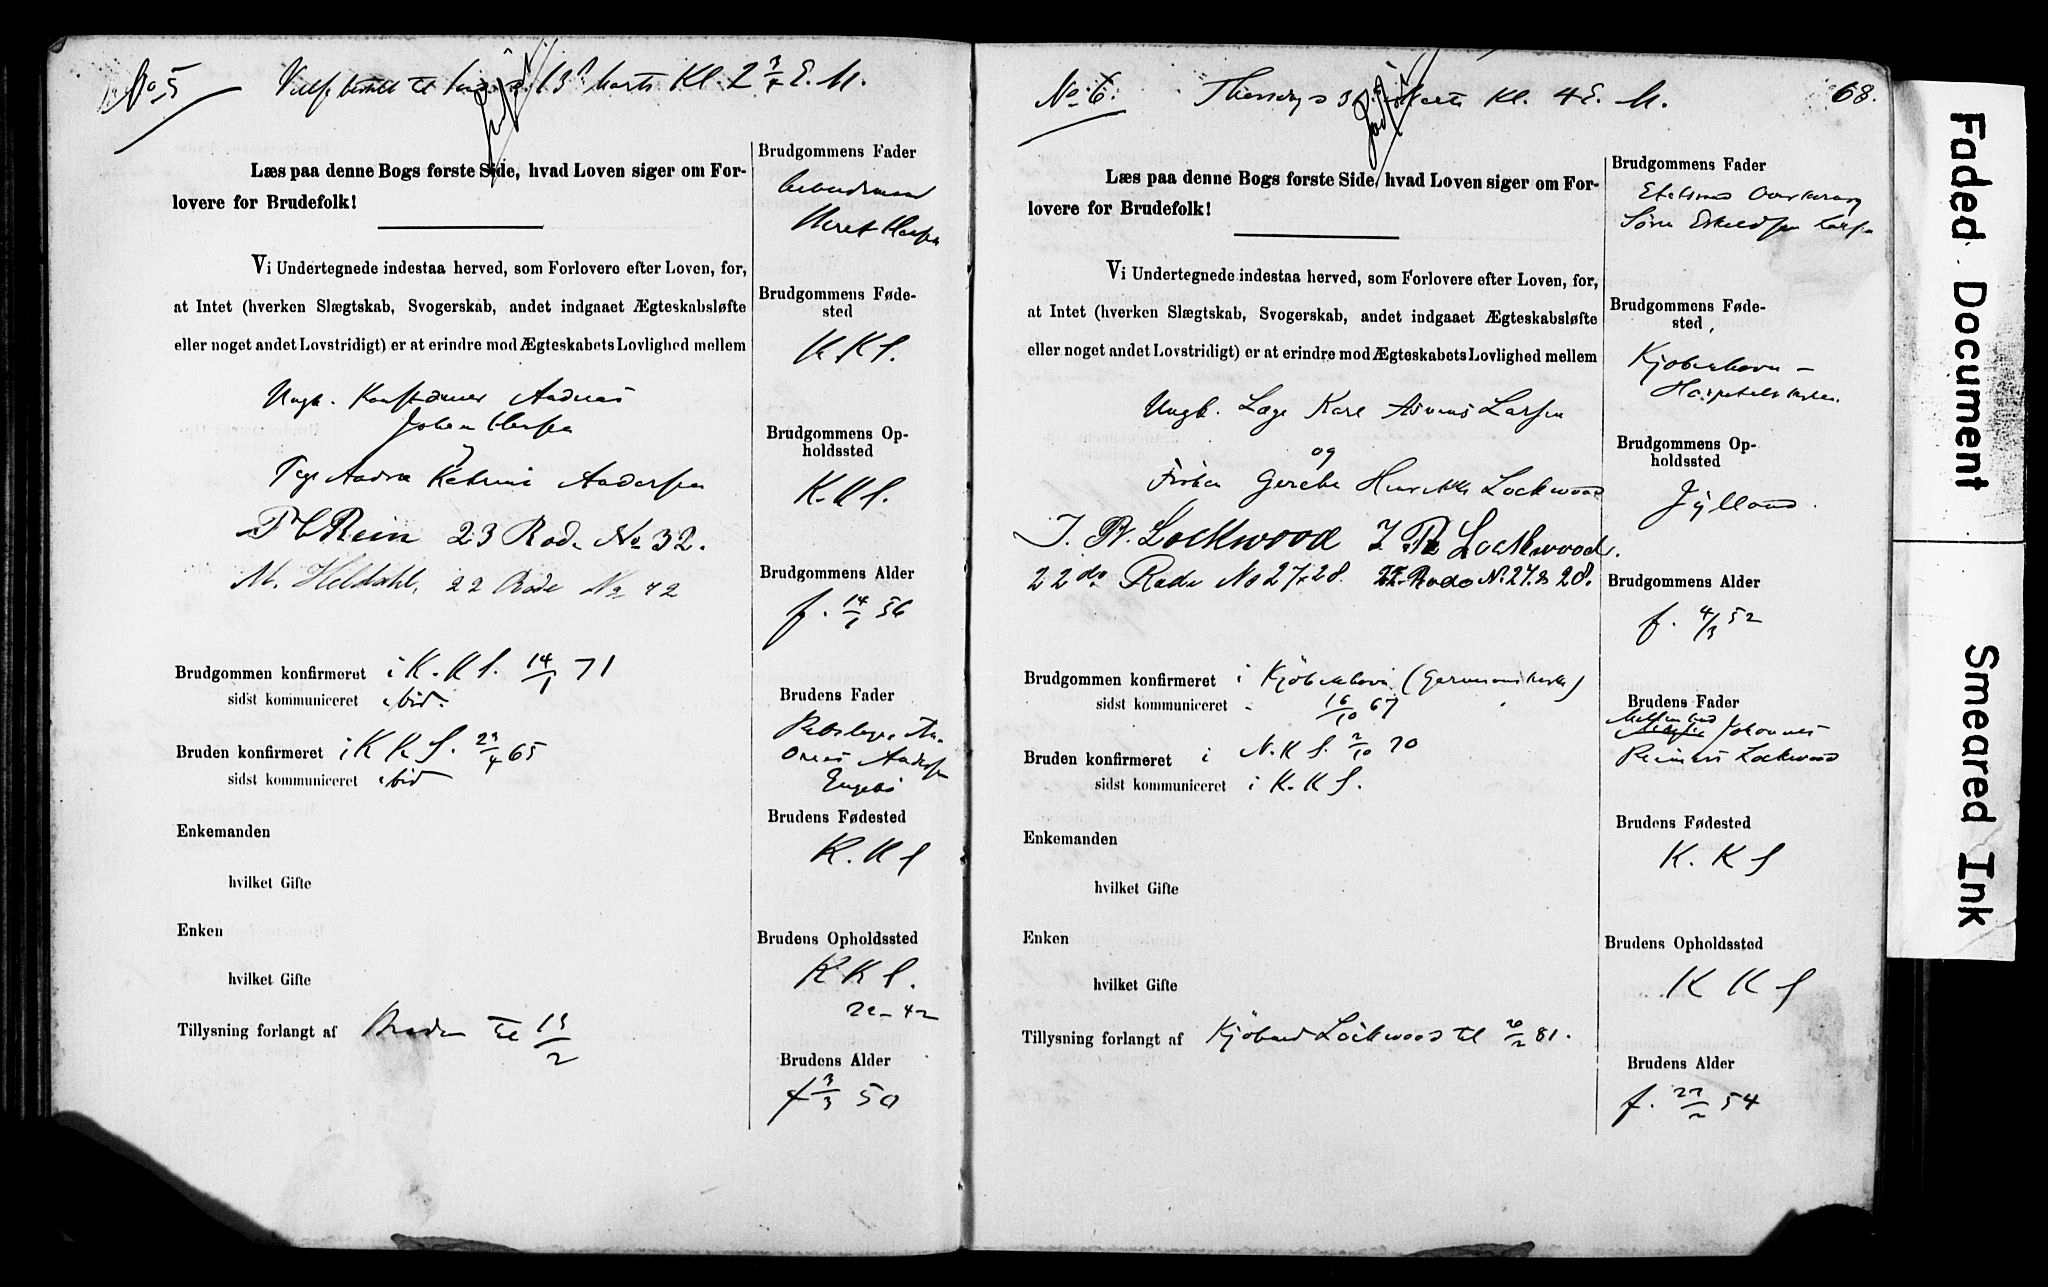 No 5
13de Marts Kl. 2 3/4 E. M.
Læs paa denne Bogs første Side, hvad Loven siger om For-
lovere for Brudefolk!
Vi Undertegnede indestaa herved, som Forlovere efter Loven, for,
at Intet (hverken Slægtskab, Svogerskab, andet indgaaet Ægteskabsløfte
eller noget andet Lovstridigt) er at erindre mod Ægteskabets Lovlighed mellem
Ungk. Andreas
Johan
og
Andrea Katrine Andersen
Rein 23 Rode No 32.
M. Heldahl, 22 Rode No 42
Brudgommen konfirmeret i K.K S. 14/1 71
sidst kommuniceret ibid.
Bruden konfirmeret i K K S. 23/4 65
sidst kommuniceret ibid
Enkemanden
hvilket Gifte
Enken
hvilket Gifte
Tillysning forlangt af Bruden til 13/2
Brudgommens Fader
Arbeidsmand
Brudgommens Føde-
sted
K K S.
Brudgommens Op-
holdssted
K. K S.
Brudgommens Alder
f. 14/1 56
Brudens Fader
Andersen
Brudens Fødested
K. K S
Brudens Opholdssted
K K S.
22 - 42
Brudens Alder
f 3/3 50
No. 6.
Thorsdag 3 Marts Kl. 4 E. M.
68.
Læs paa denne Bogs første Side, hvad Loven siger om For-
lovere for Brudefolk!
Vi Undertegnede indestaa herved, som Forlovere efter Loven, for,
at Intet (hverken Slægtskab, Svogerskab, andet indgaaet Ægteskabsløfte
eller noget andet Lovstridigt) er at erindre mod Ægteskabets Lovlighed mellem
Ungk. Læge Karl Larsen
og
Frøken Henrikke Lockwood
J. R. Lockwood J R Lockwood.
22de Rode No 27 & 28. 22 Rode No. 27 & 28.
Brudgommen konfirmeret i Kjöbenhavn (Garnisonskirke)
sidst kommuniceret - 16/10 67
Bruden konfirmeret i N. K S. 2/10 70
sidst kommuniceret i K. K S.
Enkemanden
hvilket Gifte
Enken
hvilket Gifte
Tillysning forlangt af Kjöbmd Lockwood til 20/2 81.
Brudgommens Fader
Søren Eskildsen Larsen
Brudgommens Føde-
sted
Kjøbenhavn -
Brudgommens Op-
holdssted
Jylland.
Brudgommens Alder
f. 4/3 52
Brudens Fader
Johannes
Reimers Lockwood
Brudens Fødested
K. K S
Brudens Opholdssted
K K S
Brudens Alder
f. 22/2 54
Faded Document
Smeared Ink